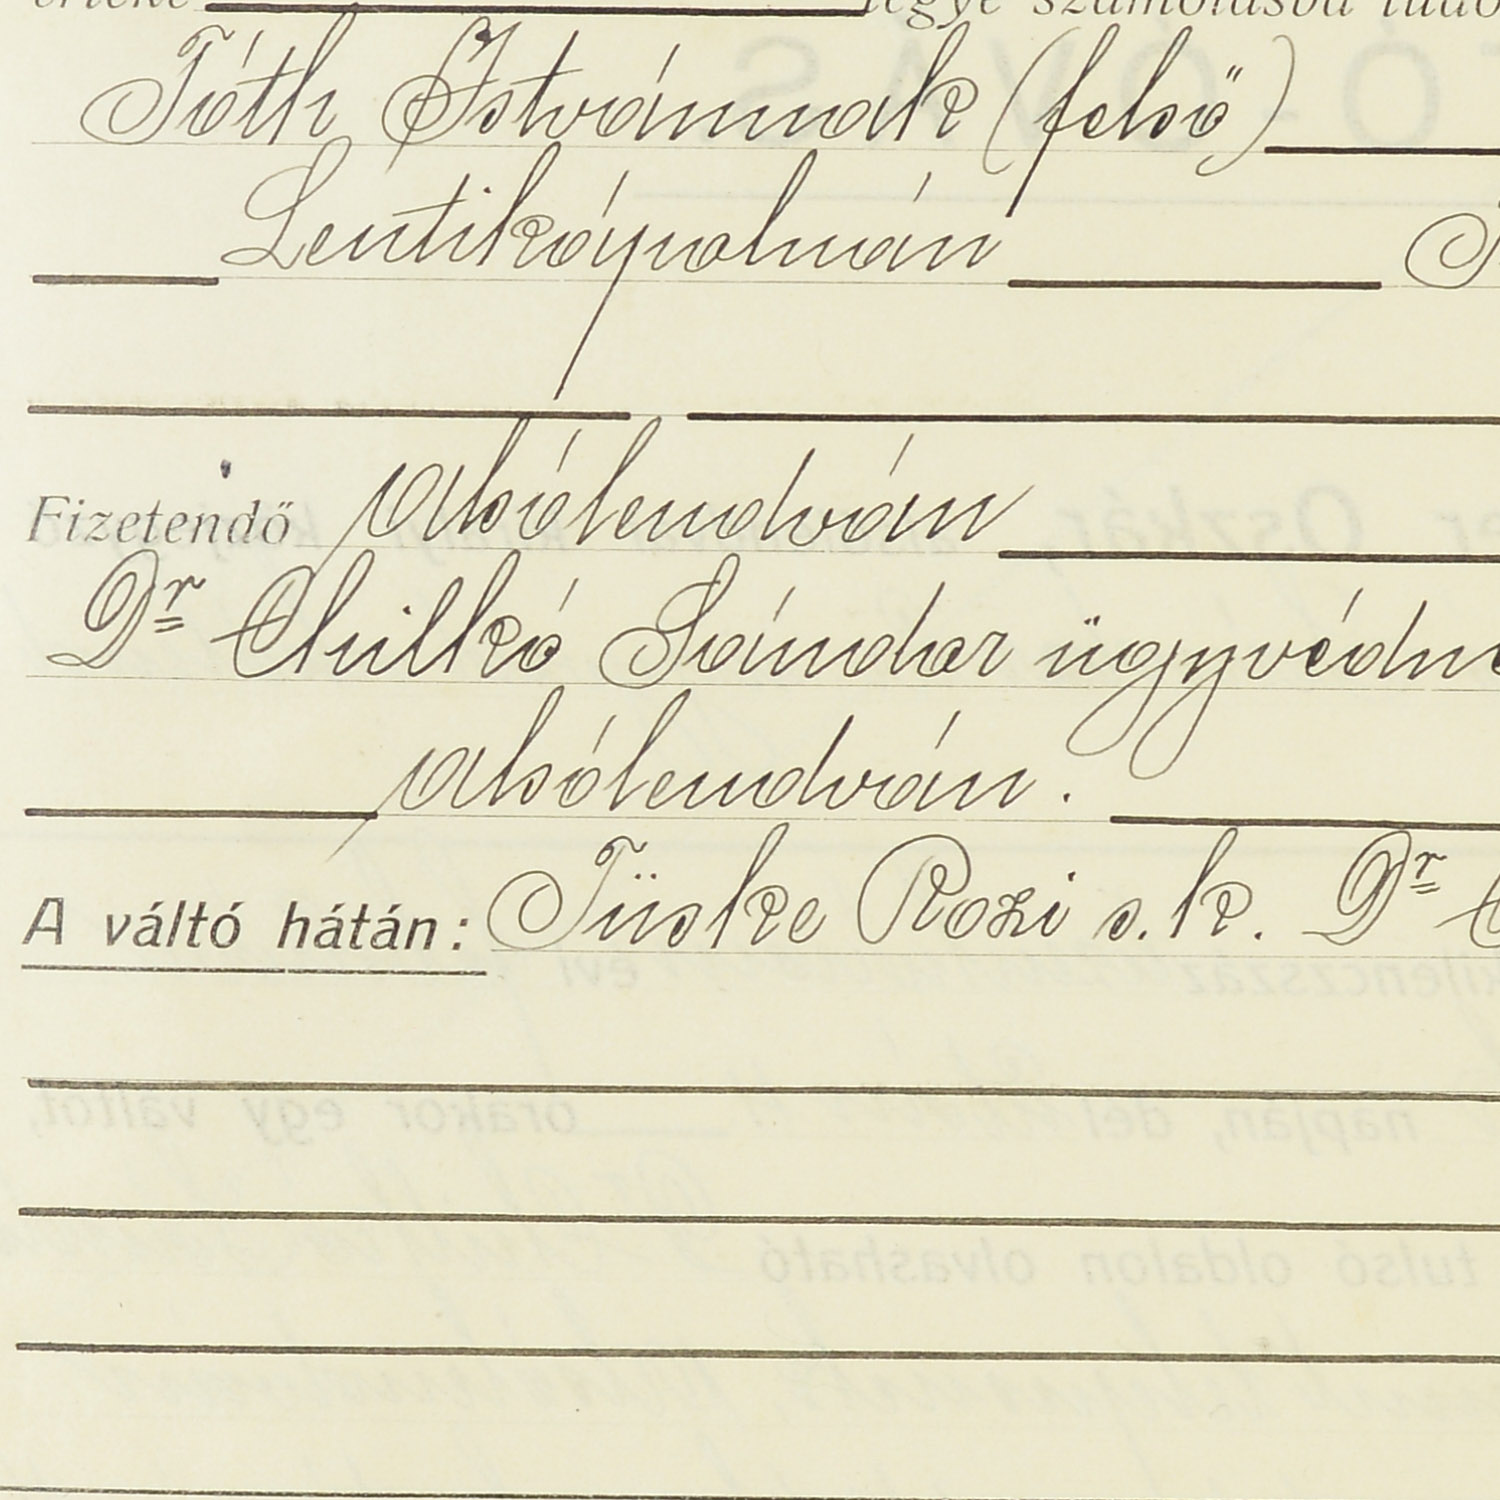 értéke legye számolásba tudo
Tóth Istvánnak (felső)
Lentikápolnán
Fizetendő Alsólendván
Dr Chilkó Sándor ügyvédne
Alsólendván.
A váltó hátán: Tüske Rozi s.k. Dr